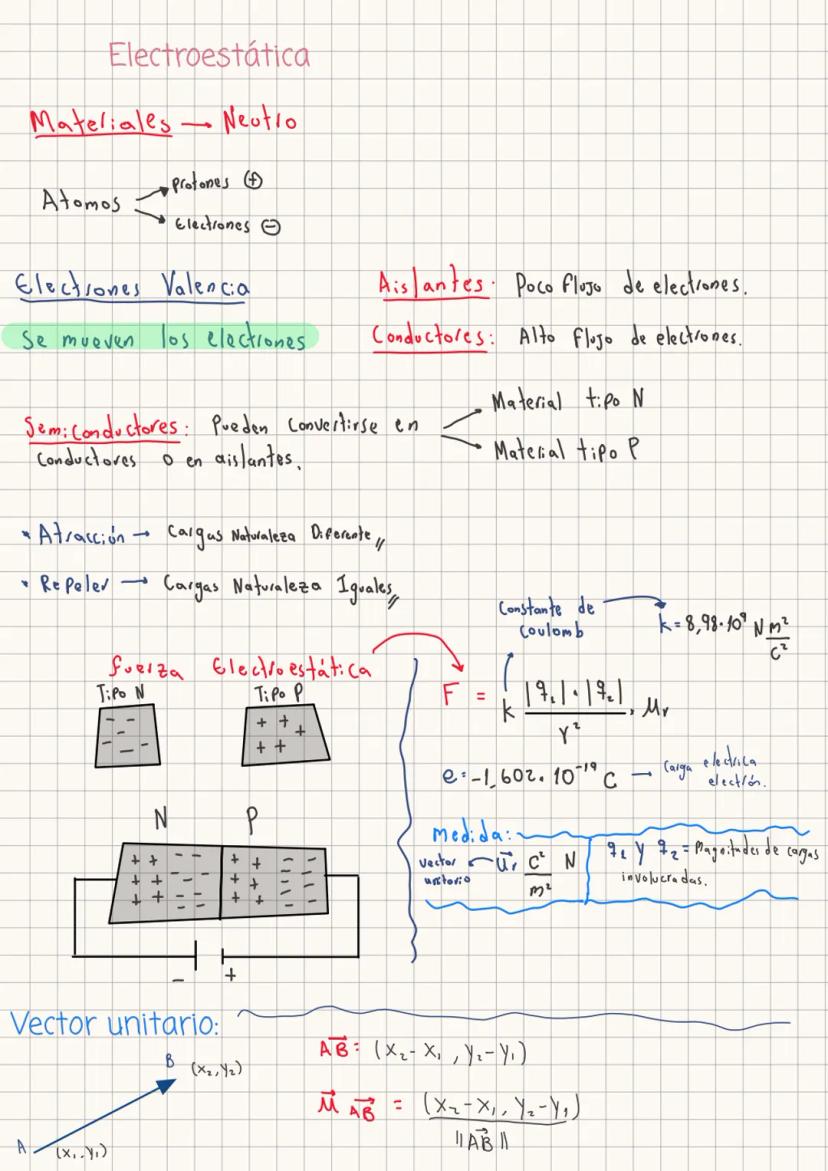 Electroestática
Materiales → Neutro
Atomos
Protones ⊕
Electrones ⊖
Electrones Valencia
Se mueven los electrones
Aislantes: Poco flujo de electrones.
Conductores: Alto flujo de electrones.
Semiconductores: Pueden convertirse en
conductores o en aislantes.
Material tipo N
Material tipo P
* Atracción → Cargas Naturaleza Diferente
* Repeler → Cargas Naturaleza Iguales
Constante de
Coulomb
k = 8,98·10⁹ N m²/c²
fuerza Electroestática
Tipo N
Tipo P
F = k |q₁|·|q₂| / r² · μr
e = -1,602·10⁻¹⁹ C → Carga electrica
electrón.
N P
- +
medida:
vector
unitario
u⃗r C²/m² N
q₁ y q₂ = Magnitudes de cargas
involucradas.
Vector unitario:
B (x₂, y₂)
A (x₁, y₁)
AB⃗ = (x₂-x₁, y₂-y₁)
μ⃗ AB⃗ = (x₂-x₁, y₂-y₁) / ||AB⃗||